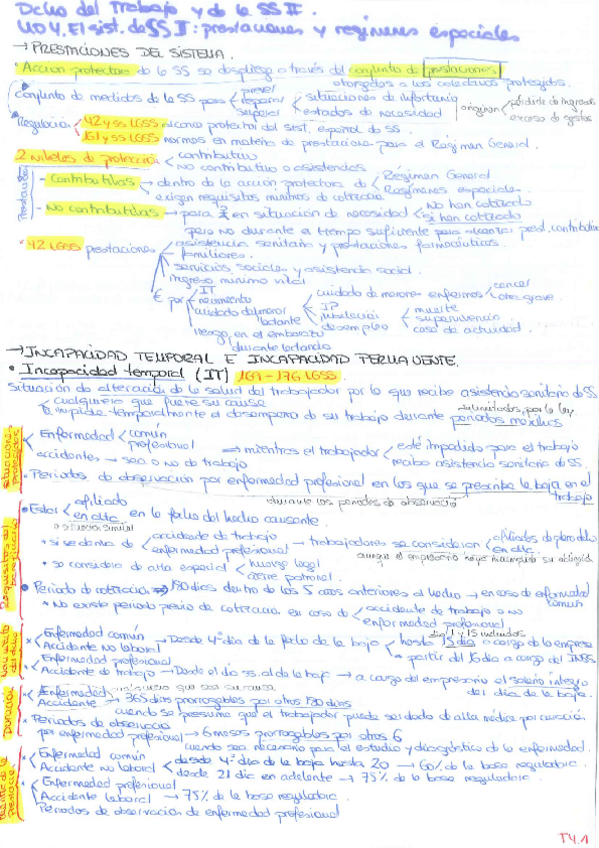 Dcho del Trabajo y de la SS II.
UD 4. El sist. de SS II: prestaciones y regímenes especiales
→ PRESTACIONES DEL SISTEMA.
· Acción protectora de la SS se despliega a través del conjunto de prestaciones
otorgadas a los colectivos protegidos.
Conjunto de medidas de la SS para prever reparar superar situaciones de infortunio estados de necesidad originan pérdida de ingresos exceso de gastos
Regulación 42 y ss LGSS alcance protector del sist. español de SS.
161 y ss LGSS normas en materia de prestaciones para el Régimen General.
2 niveles de protección contributivo
no contributivo o asistencial
Prestaciones
- Contributivas → dentro de la acción protectora de Régimen General Regímenes especiales.
exigen requisitos mínimos de cotización
- No contributivas → para en situación de necesidad no han cotizado si han cotizado
pero no durante el tiempo suficiente para alcanzar prest. contributiva
· 42 LGSS prestaciones asistencia sanitaria y prestaciones farmacéuticas.
familiares.
servicios sociales y asistencia social.
ingreso mínimo vital
€ por IT
nacimiento
cuidado del menor lactante
riesgo en el embarazo durante lactancia
cuidado de menores enfermos cáncel otra grave.
IP
jubilación
desempleo
muerte
supervivencia
cese de actividad.
→ INCAPACIDAD TEMPORAL E INCAPACIDAD PERMANENTE.
• Incapacidad temporal (IT) 169 - 176 LGSS.
Situación de alteración de la salud del trabajador por la que recibe asistencia sanitaria de SS
cualquiera que fuere su causa
le impide temporalmente el desempeño de su trabajo durante periodos máximos delimitados por la ley.
Situaciones protegidas
Enfermedad común profesional
accidentes → sea o no de trabajo
⇒ mientras el trabajador esté impedido para el trabajo
reciba asistencia sanitaria de SS.
· Periodos de observación por enfermedad profesional en los que se prescriba la baja en el trabajo
durante los periodos de observación
Requisitos del beneficiario
• Estar afiliado en alta en la fecha del hecho causante.
o situac. similar
· si se deriva de accidente de trabajo enfermedad profesional → trabajadores se consideran afiliados de pleno dcho en alta.
aunque el empresario haya incumplido su obligac.
· se considera de alta especial huelga legal cierre patronal.
• Periodo de cotización → 180 días dentro de los 5 años anteriores al hecho → en caso de enfermedad común
· No existe periodo previo de cotización en caso de accidente de trabajo o no
enfermedad profesional
Nacimiento del dcho
· Enfermedad común
Accidente no laboral → Desde 4º día de la fecha de la baja hasta 15 día a cargo de la empresa
día 4 y 15 incluidos
a partir del 16 día a cargo del INSS
· Enfermedad profesional
Accidente de trabajo → Desde el día ss. al de la baja → a cargo del empresario el salario íntegro
del día de la baja.
Duración
· Enfermedad cualquiera que sea su causa
Accidente → 365 días prorrogables por otros 180 días
cuando se presuma que el trabajador puede ser dado de alta médica por curación
· Periodos de observación
por enfermedad profesional → 6 meses prorrogables por otros 6
cuando sea necesario para el estudio y diagnóstico de la enfermedad.
Cuantía de la prestación
· Enfermedad común
Accidente no laboral desde 4º día de la baja hasta 20 → 60% de la base reguladora.
desde 21 día en adelante → 75% de la base reguladora.
· Enfermedad profesional
Accidente laboral → 75% de la base reguladora.
Periodos de observación de enfermedad profesional
T4.1